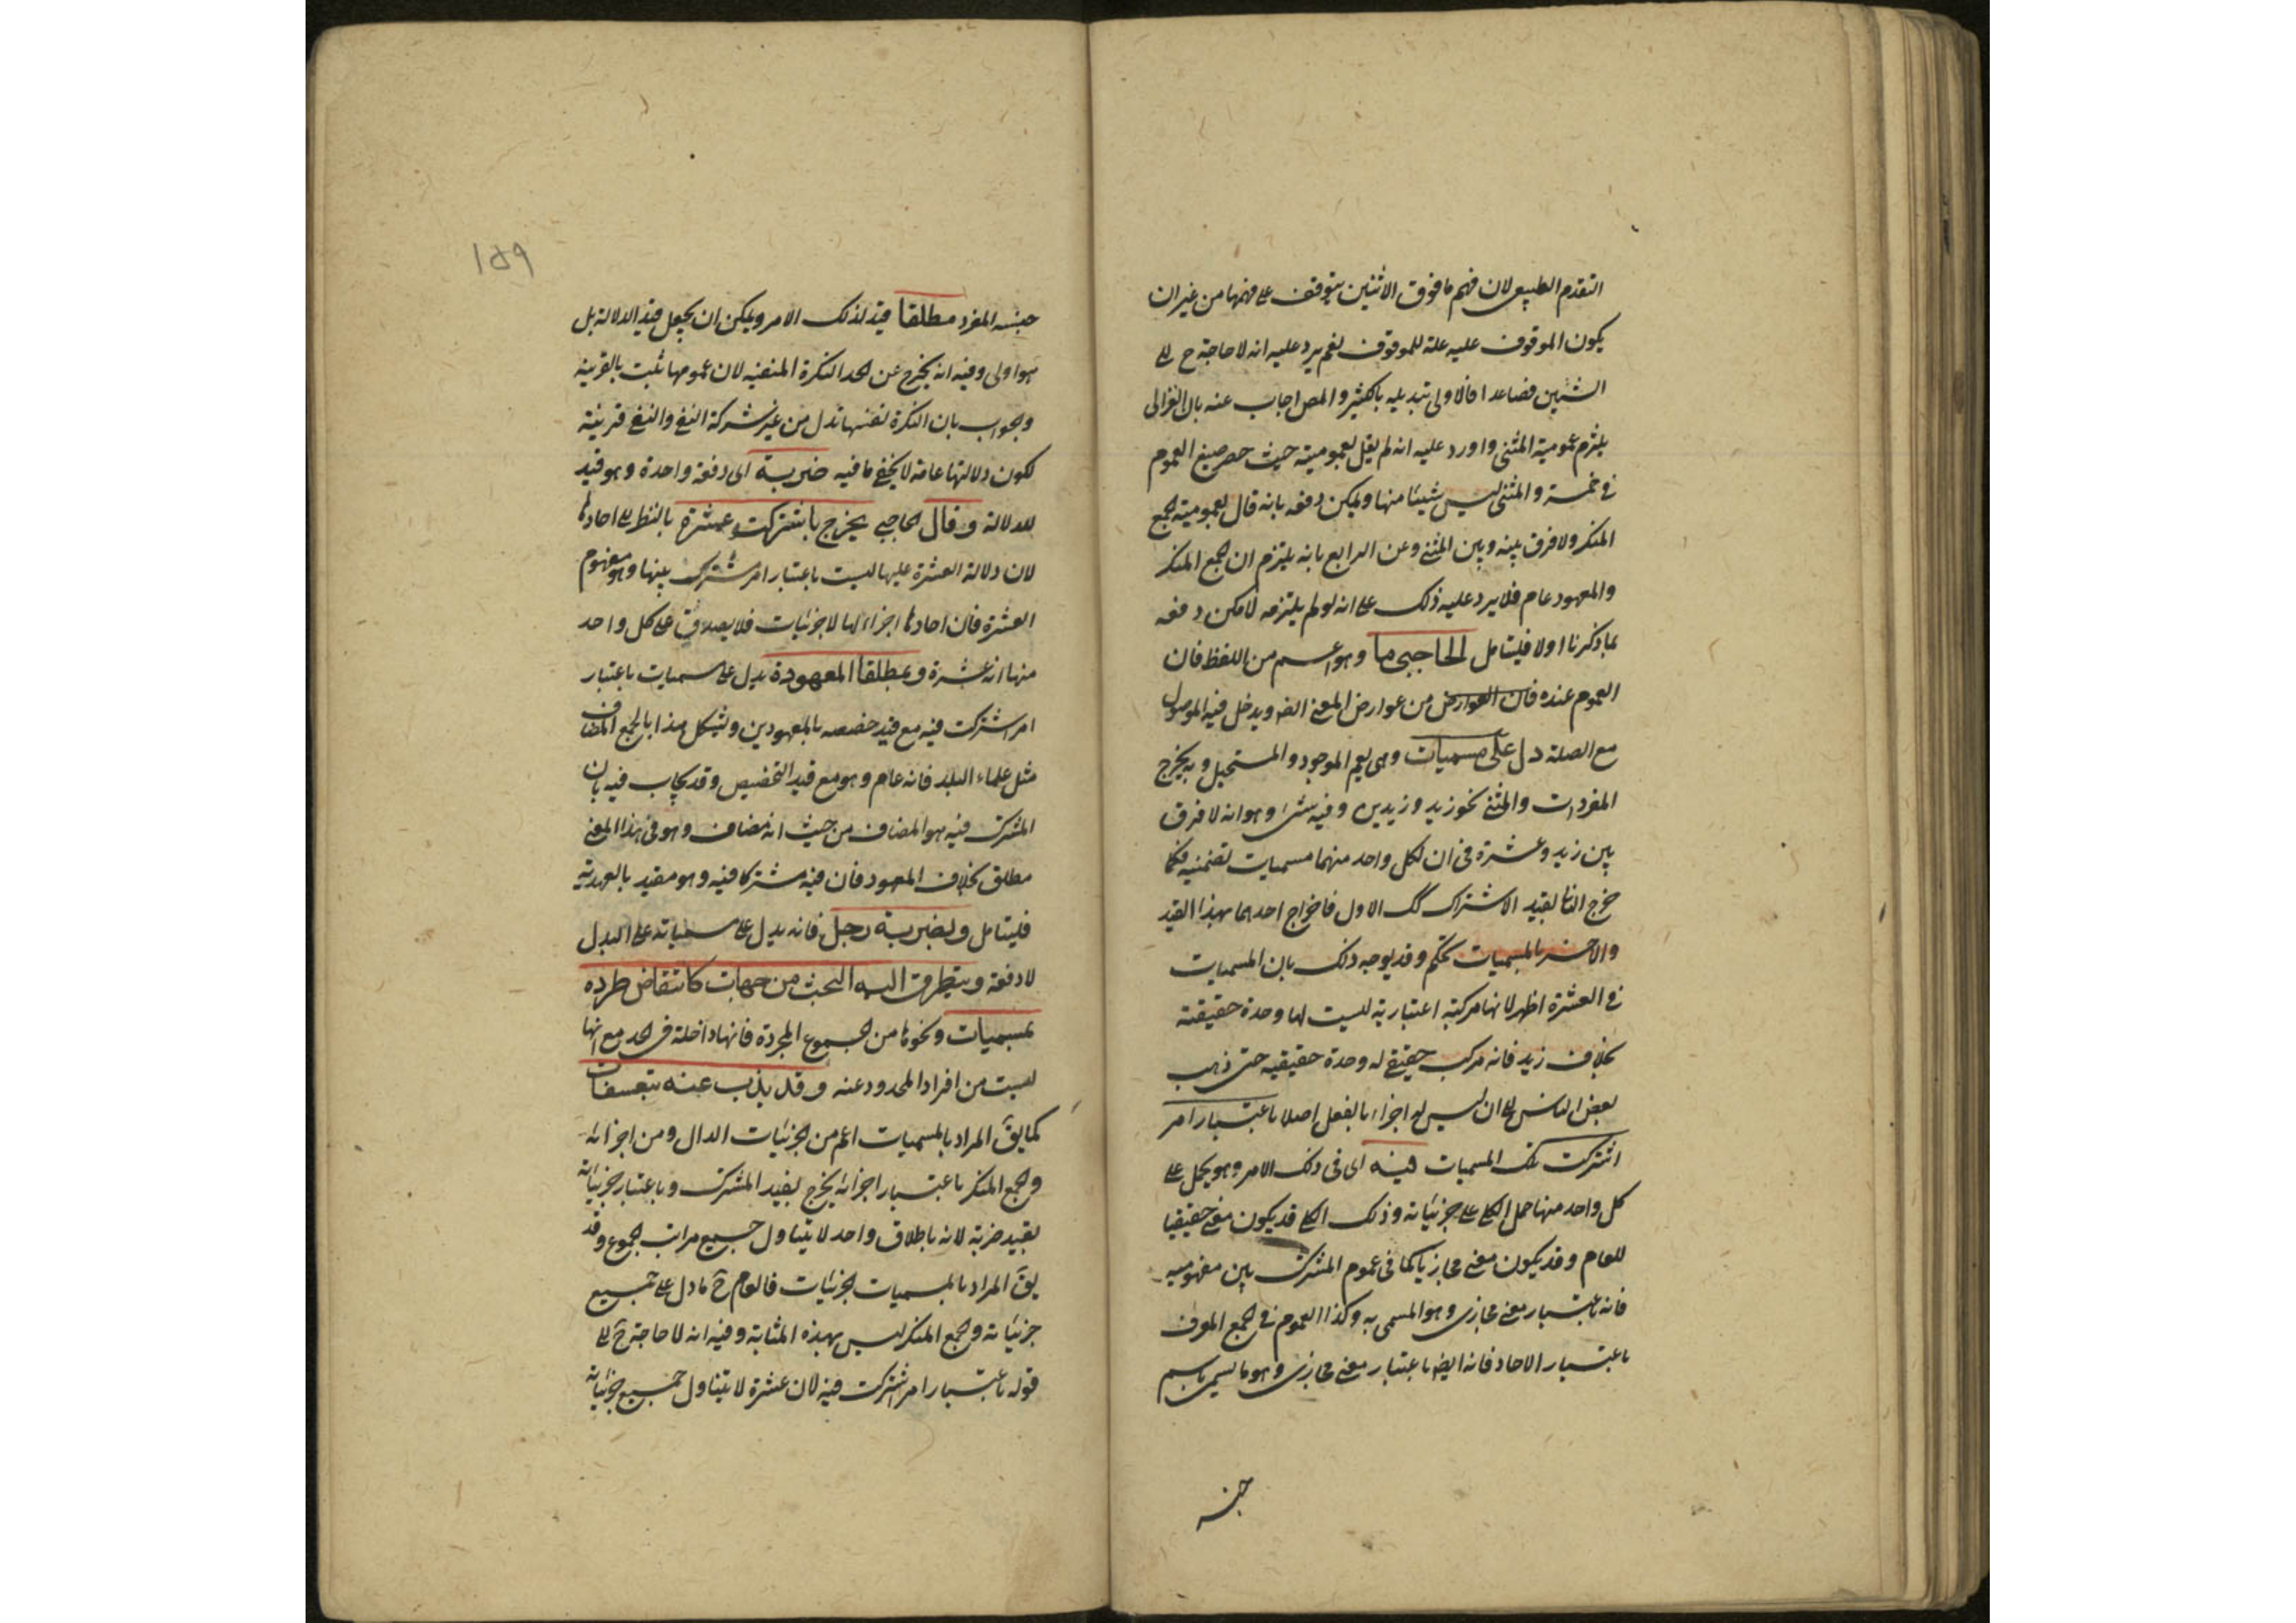 التقدم الطبيعى لان فهم ما فوق الاثنين يتوقف على فهمها من غير ان
يكون الموقوف عليه علة للموقوف نعم يرد عليه انه لا حاجة ح الى
الشيئين فصاعدا فالاولى تبديله بالكثير والمص اجاب عنه بان الغزالى
يلتزم عمومية المثنى واورد عليه انه لم يقل بعموميته حيث حصر صيغ العموم
فى خمسة والمثنى ليس شيئا منها ويمكن دفعه بانه قال بعمومية الجمع
المنكر ولا فرق بينه وبين المثنى وعن الرابع بانه يلتزم ان الجمع المنكر
والمعهود عام فلا يرد عليه ذلك على انه لو لم يلتزمه لامكن دفعه
بما ذكرنا اولا فليتامل الحاجبى ما وهو اعم من اللفظ فان
العموم عنده فان العوارض من عوارض المعنى ايضا ويدخل فيه الموصول
مع الصلة دل على مسميات وهى يعم الموجود والمستحيل وبه يخرج
المفردات والمثنى نحو زيد وزيدين وفيه شئ وهو انه لا فرق
بين زيد وعشرة فى ان لكل واحد منهما مسميات تضمنية فكما
خرج الثانى بقيد الاشتراك كك الاول فاخراج احدهما بهذا القيد
والاخر بالمسميات تحكم وقد يوجه ذلك بان المسميات
فى العشرة اظهر لانها مركبة اعتبارية ليست لها وحدة حقيقية
بخلاف زيد فانه مركب حقيقى له وحدة حقيقيه حتى ذهب
بعض الناس الى ان ليس له اجزاء بالفعل اصلا باعتبار امر
اشتركت تلك المسميات فيه اى فى ذلك الامر وهو يحمل على
كل واحد منها حمل الكلى على جزئياته وذلك الكلى قد يكون معنى حقيقيا
للعام وقد يكون معنى مجازيا كما فى عموم المشترك بين مفهوميه
فانه باعتبار معنى مجازى وهو المسمى به وكذا العموم فى الجمع المعرف
باعتبار الاحاد فانه ايضا باعتبار معنى مجازى وهو ما يسمى باسم
جنسه
١٥٩
جنسه المفرد مطلقا قيد لذلك الامر ويمكن ان يجعل قيد الدلالة بل
هو اولى وفيه انه يخرج عن الحد النكرة المنفية لان عمومها ثبت بالقرينة
والجواب بان النكرة نفسها تدل من غير شركة النفى والنفى قرينة
لكون دلالتها عامة لا يخفى ما فيه ضربة اى دفعة واحدة وهو قيد
للدلالة وقال الحاجبى يخرج باشتركت عشرة بالنظر الى احادها
لان دلالة العشرة عليها ليست باعتبار امر مشترك بينها وهو مفهوم
العشرة فان احادها اجزاء لها لا جزئيات فلا يصدق على كل واحد
منها انه عشرة وبمطلقا المعهودة يدل على مسميات باعتبار
امر اشتركت فيه مع قيد خصصه بالمعهودين ويشكل هذا بالجمع المضاف
مثل علماء البلد فانه عام وهو مع قيد التخصيص وقد يجاب فيه بان
المشترك فيه هو المضاف من حيث انه مضاف وهو فى هذا المعنى
مطلق بخلاف المعهود فان فيه مشتركا فيه وهو مقيد بالعهدية
فليتامل وبضربة رجل فانه يدل على مسمياته على البدل
لا دفعة ويتطرق اليه البحث من جهات كانتقاض طرده
بمسميات ونحوها من الجموع المجردة فانها داخلة فى الحد مع انها
ليست من افراد المحدود عنه وقد يذب عنه بتعسفات
كما يق المراد بالمسميات اعم من الجزئيات الدال ومن اجزائه
والجمع المنكر باعتبار اجزائه يخرج بقيد المشترك وباعتبار جزئياته
بقيد ضربة لانه باطلاق واحد لا يتناول جميع مراتب الجموع وقد
يق المراد بالمسميات الجزئيات فالعام ح ما دل على جميع
جزئياته والجمع المنكر ليس بهذه المثابة وفيه انه لا حاجة ح الى
قوله باعتبار امر اشتركت فيه لان عشرة لا يتناول جميع جزئياته